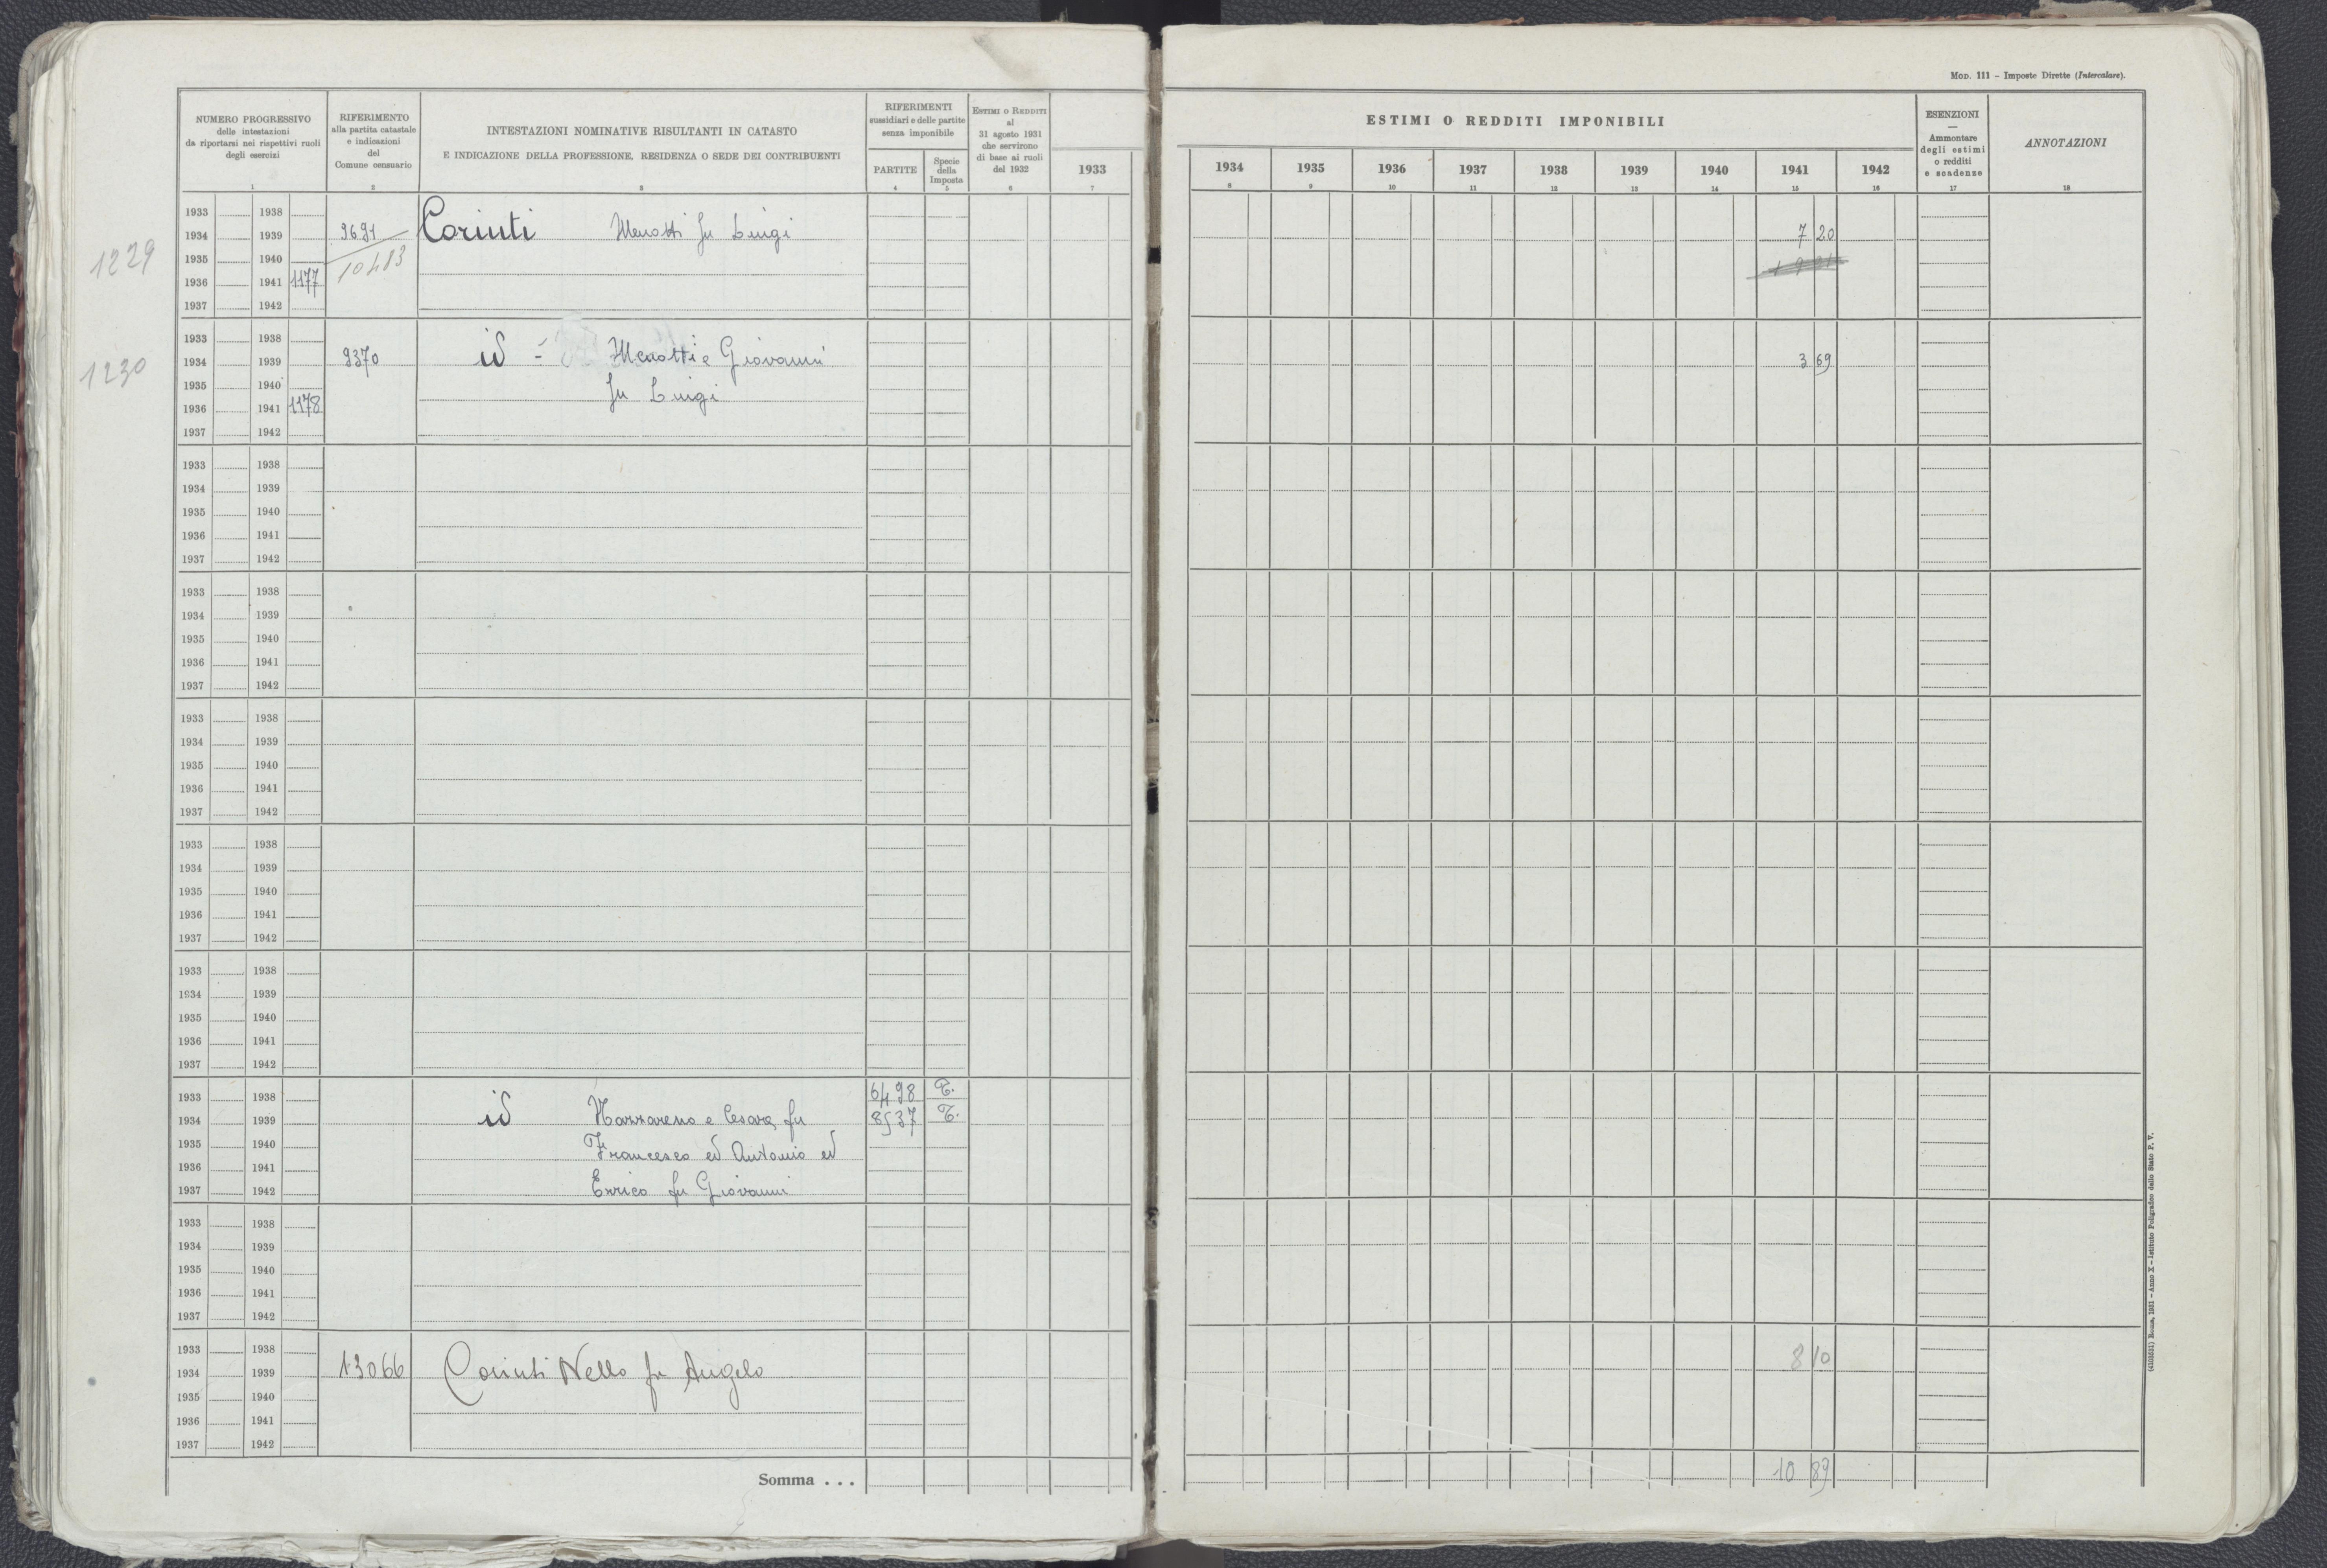 MOD. 111 – Imposte Dirette (Intercalare).
NUMERO PROGRESSIVO
delle intestazioni
da riportarsi nei rispettivi ruoli
degli esercizi
1
RIFERIMENTO
alla partita catastale
e indicazioni
del
Comune censuario
2
INTESTAZIONI NOMINATIVE RISULTANTI IN CATASTO
E INDICAZIONE DELLA PROFESSIONE, RESIDENZA O SEDE DEI CONTRIBUENTI
3
RIFERIMENTI
sussidiari e delle partite
senza imponibile
PARTITE
4
Specie
della
Imposta
5
ESTIMI O REDDITI
al
31 agosto 1931
che servirono
di base ai ruoli
del 1932
6
1933
7
ESTIMI O REDDITI IMPONIBILI
1934 1935 1936 1937 1938 1939 1940 1941 1942
8 9 10 11 12 13 14 15 16
ESENZIONI
—
Ammontare
degli estimi
o redditi
e scadenze
17
ANNOTAZIONI
18
1933 1938
1934 1939 9691 Corinti Menotti fu Luigi 7 20
1229
1935 1940 10483
1936 1941 1177
1937 1942
1933 1938
1934 1939 9370 id = Menotti e Giovanni 3 69
1230
1935 1940 fu Luigi
1936 1941 1178
1937 1942
1933 1938
1934 1939
1935 1940
1936 1941
1937 1942
1933 1938
1934 1939
1935 1940
1936 1941
1937 1942
1933 1938
1934 1939
1935 1940
1936 1941
1937 1942
1933 1938
1934 1939
1935 1940
1936 1941
1937 1942
1933 1938
1934 1939
1935 1940
1936 1941
1937 1942
1933 1938 6498 T.
1934 1939 id Nazzareno e Cesare fu 8537 T.
1935 1940 Francesco ed Antonio ed
1936 1941
1937 1942 Errico fu Giovanni
1933 1938
1934 1939
1935 1940
1936 1941
1937 1942
1933 1938 8 10
1934 1939 13066 Corinti Nello fu Angelo
1935 1940
1936 1941
1937 1942
Somma . . . 10 89
(4103531) Roma, 1931 – Anno X – Istituto Poligrafico dello Stato P. V.